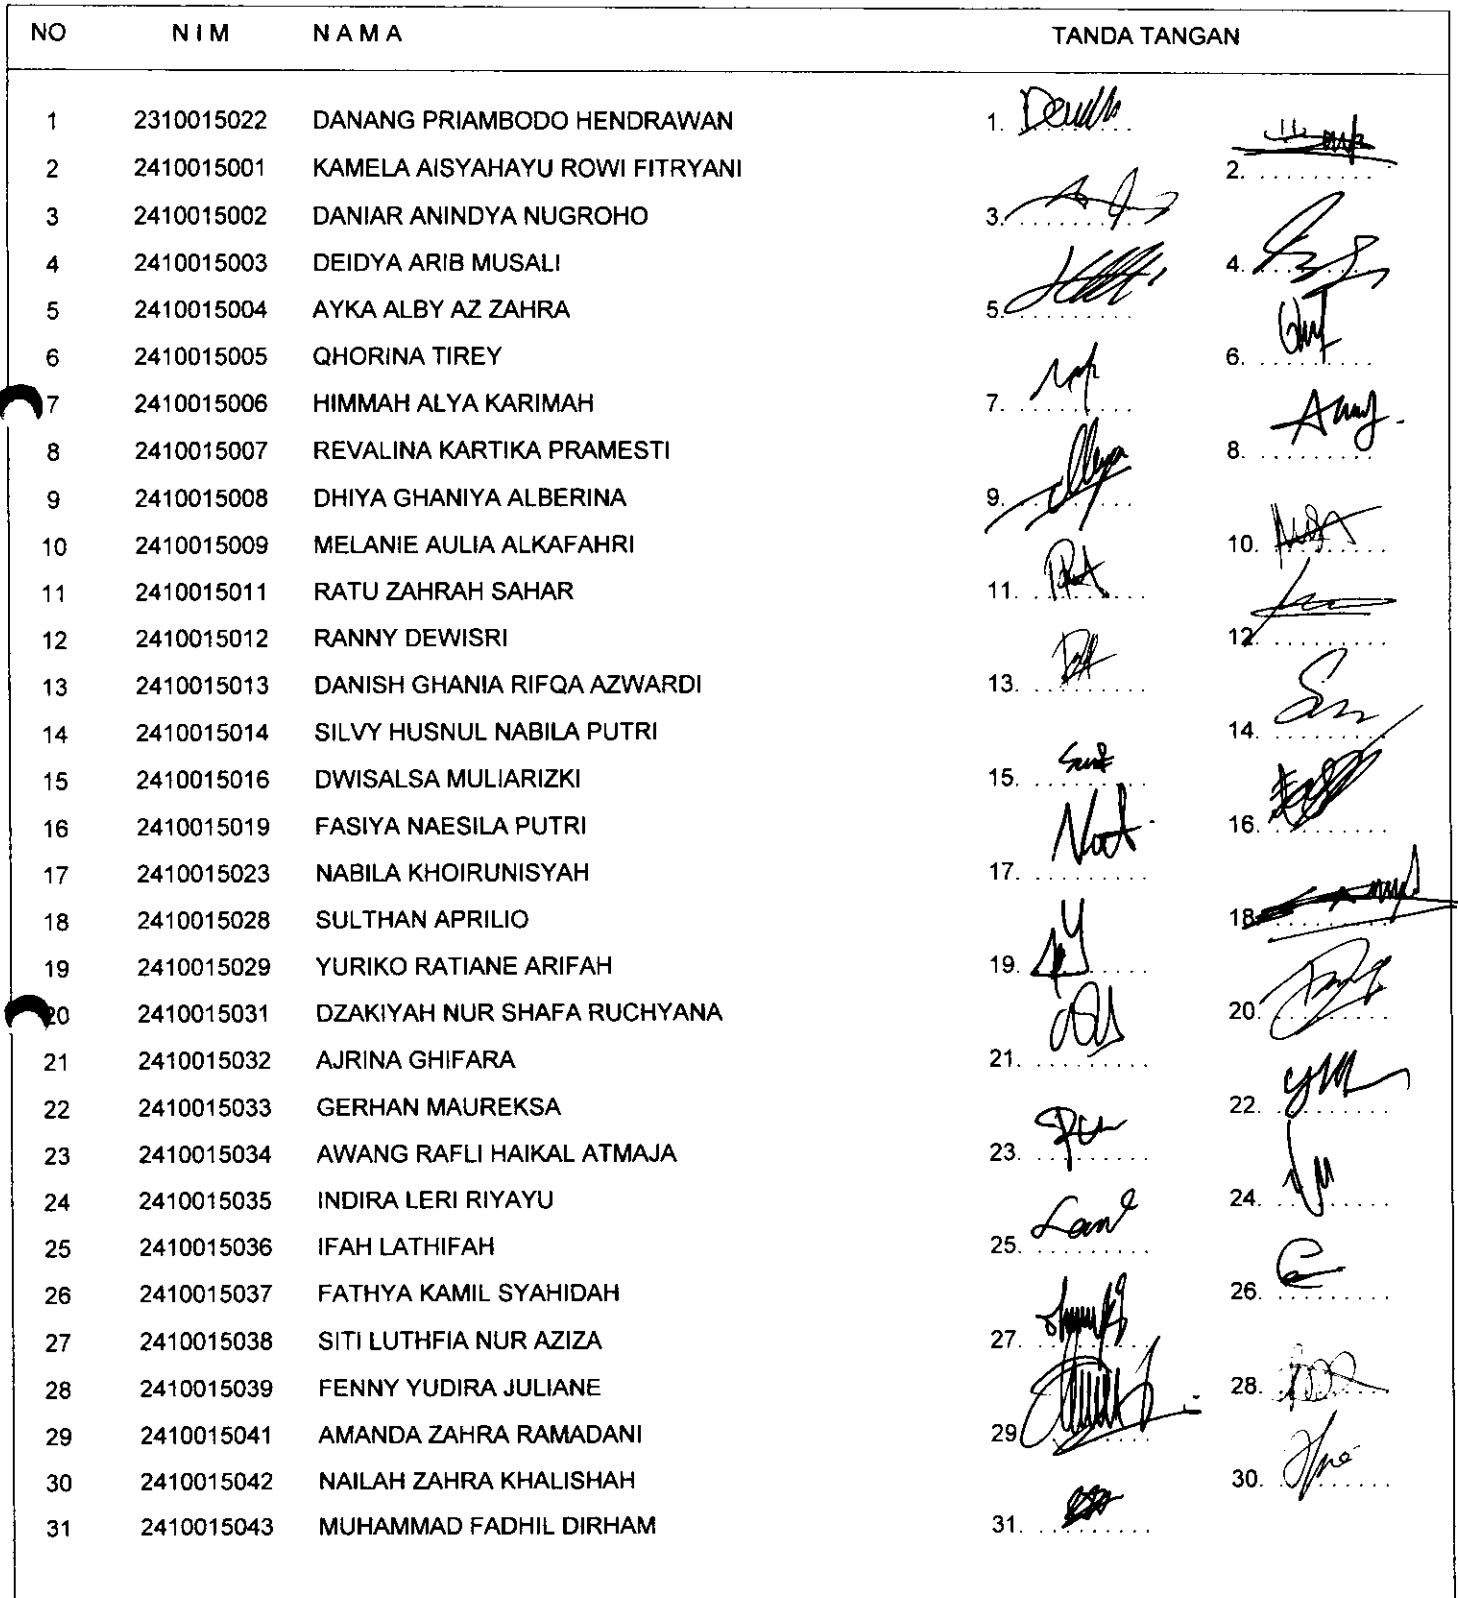 NO NIM NAMA TANDA TANGAN
1 2310015022 DANANG PRIAMBODO HENDRAWAN 1. ..........
2 2410015001 KAMELA AISYAHAYU ROWI FITRYANI 2. ..........
3 2410015002 DANIAR ANINDYA NUGROHO 3. ..........
4 2410015003 DEIDYA ARIB MUSALI 4. ..........
5 2410015004 AYKA ALBY AZ ZAHRA 5. ..........
6 2410015005 QHORINA TIREY 6. ..........
7 2410015006 HIMMAH ALYA KARIMAH 7. ..........
8 2410015007 REVALINA KARTIKA PRAMESTI 8. ..........
9 2410015008 DHIYA GHANIYA ALBERINA 9. ..........
10 2410015009 MELANIE AULIA ALKAFAHRI 10. ..........
11 2410015011 RATU ZAHRAH SAHAR 11. ..........
12 2410015012 RANNY DEWISRI 12. ..........
13 2410015013 DANISH GHANIA RIFQA AZWARDI 13. ..........
14 2410015014 SILVY HUSNUL NABILA PUTRI 14. ..........
15 2410015016 DWISALSA MULIARIZKI 15. ..........
16 2410015019 FASIYA NAESILA PUTRI 16. ..........
17 2410015023 NABILA KHOIRUNISYAH 17. ..........
18 2410015028 SULTHAN APRILIO 18. ..........
19 2410015029 YURIKO RATIANE ARIFAH 19. ..........
20 2410015031 DZAKIYAH NUR SHAFA RUCHYANA 20. ..........
21 2410015032 AJRINA GHIFARA 21. ..........
22 2410015033 GERHAN MAUREKSA 22. ..........
23 2410015034 AWANG RAFLI HAIKAL ATMAJA 23. ..........
24 2410015035 INDIRA LERI RIYAYU 24. ..........
25 2410015036 IFAH LATHIFAH 25. ..........
26 2410015037 FATHYA KAMIL SYAHIDAH 26. ..........
27 2410015038 SITI LUTHFIA NUR AZIZA 27. ..........
28 2410015039 FENNY YUDIRA JULIANE 28. ..........
29 2410015041 AMANDA ZAHRA RAMADANI 29. ..........
30 2410015042 NAILAH ZAHRA KHALISHAH 30. ..........
31 2410015043 MUHAMMAD FADHIL DIRHAM 31. ..........